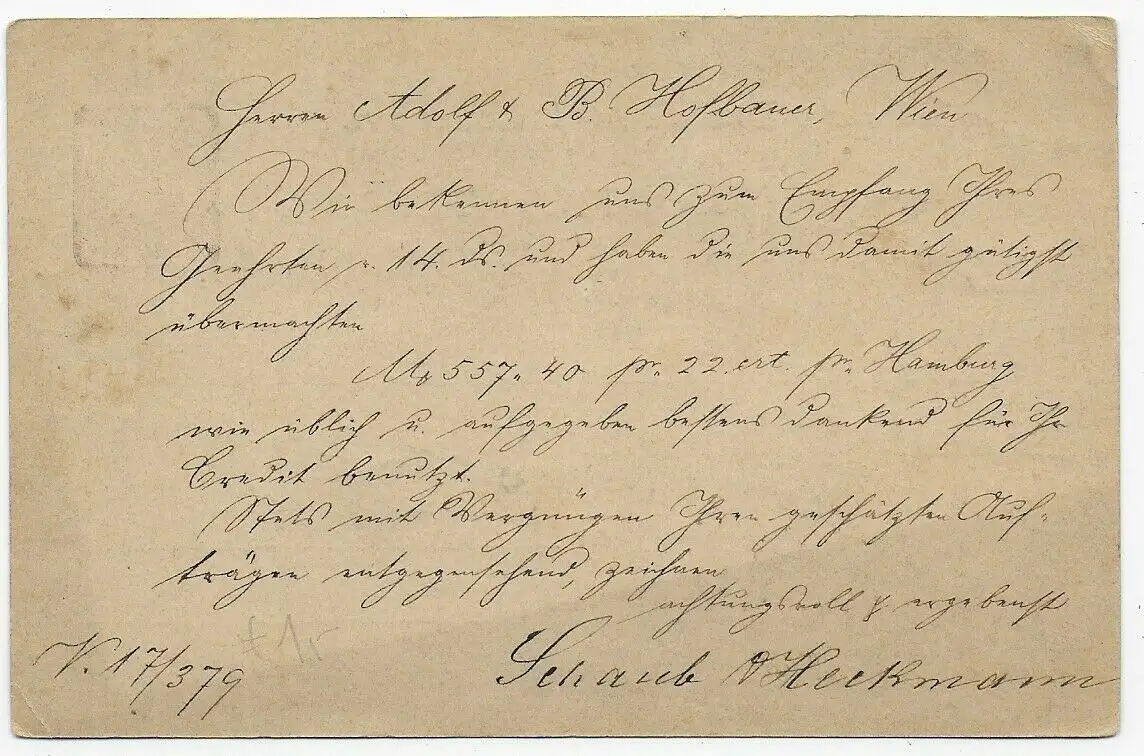 Herren Adolf & B. Hofbauer, Wien
Wir bekennen uns zum Empfang Ihres
Geehrten v. 14. ds. und haben die uns damit gütigst
übermachten
Mk 557„ 40 pr. 22. crt. pr. Hamburg
wie üblich u. aufgegeben bestens dankend für Ihr
Credit benutzt.
Stets mit Vergnügen Ihren geschätzten Auf-
trägen entgegensehend, zeichnen
achtungsvoll & ergebenst
Schaub & Heckmann
V. 17/379